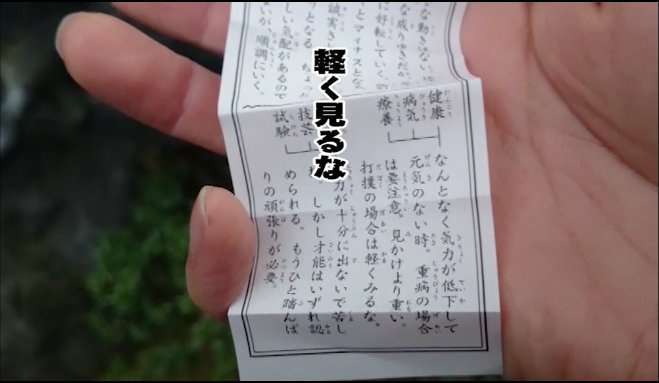 な動きはない。
な成りゆきだが、
に好転していく。
っとマイナスとな
誠実さ
りとなる。ちょっ
しい気配があるので
ないが、順調にいく。
健康
病気
療養
なんとなく気力が低下して
元気のない時。重病の場合
は要注意。見かけより重い。
打撲の場合は軽くみるな。
軽く見るな
技芸
試験
力が十分に出ないで苦し
しかし才能はいずれ認
められる。もうひと踏んば
りの頑張りが必要。